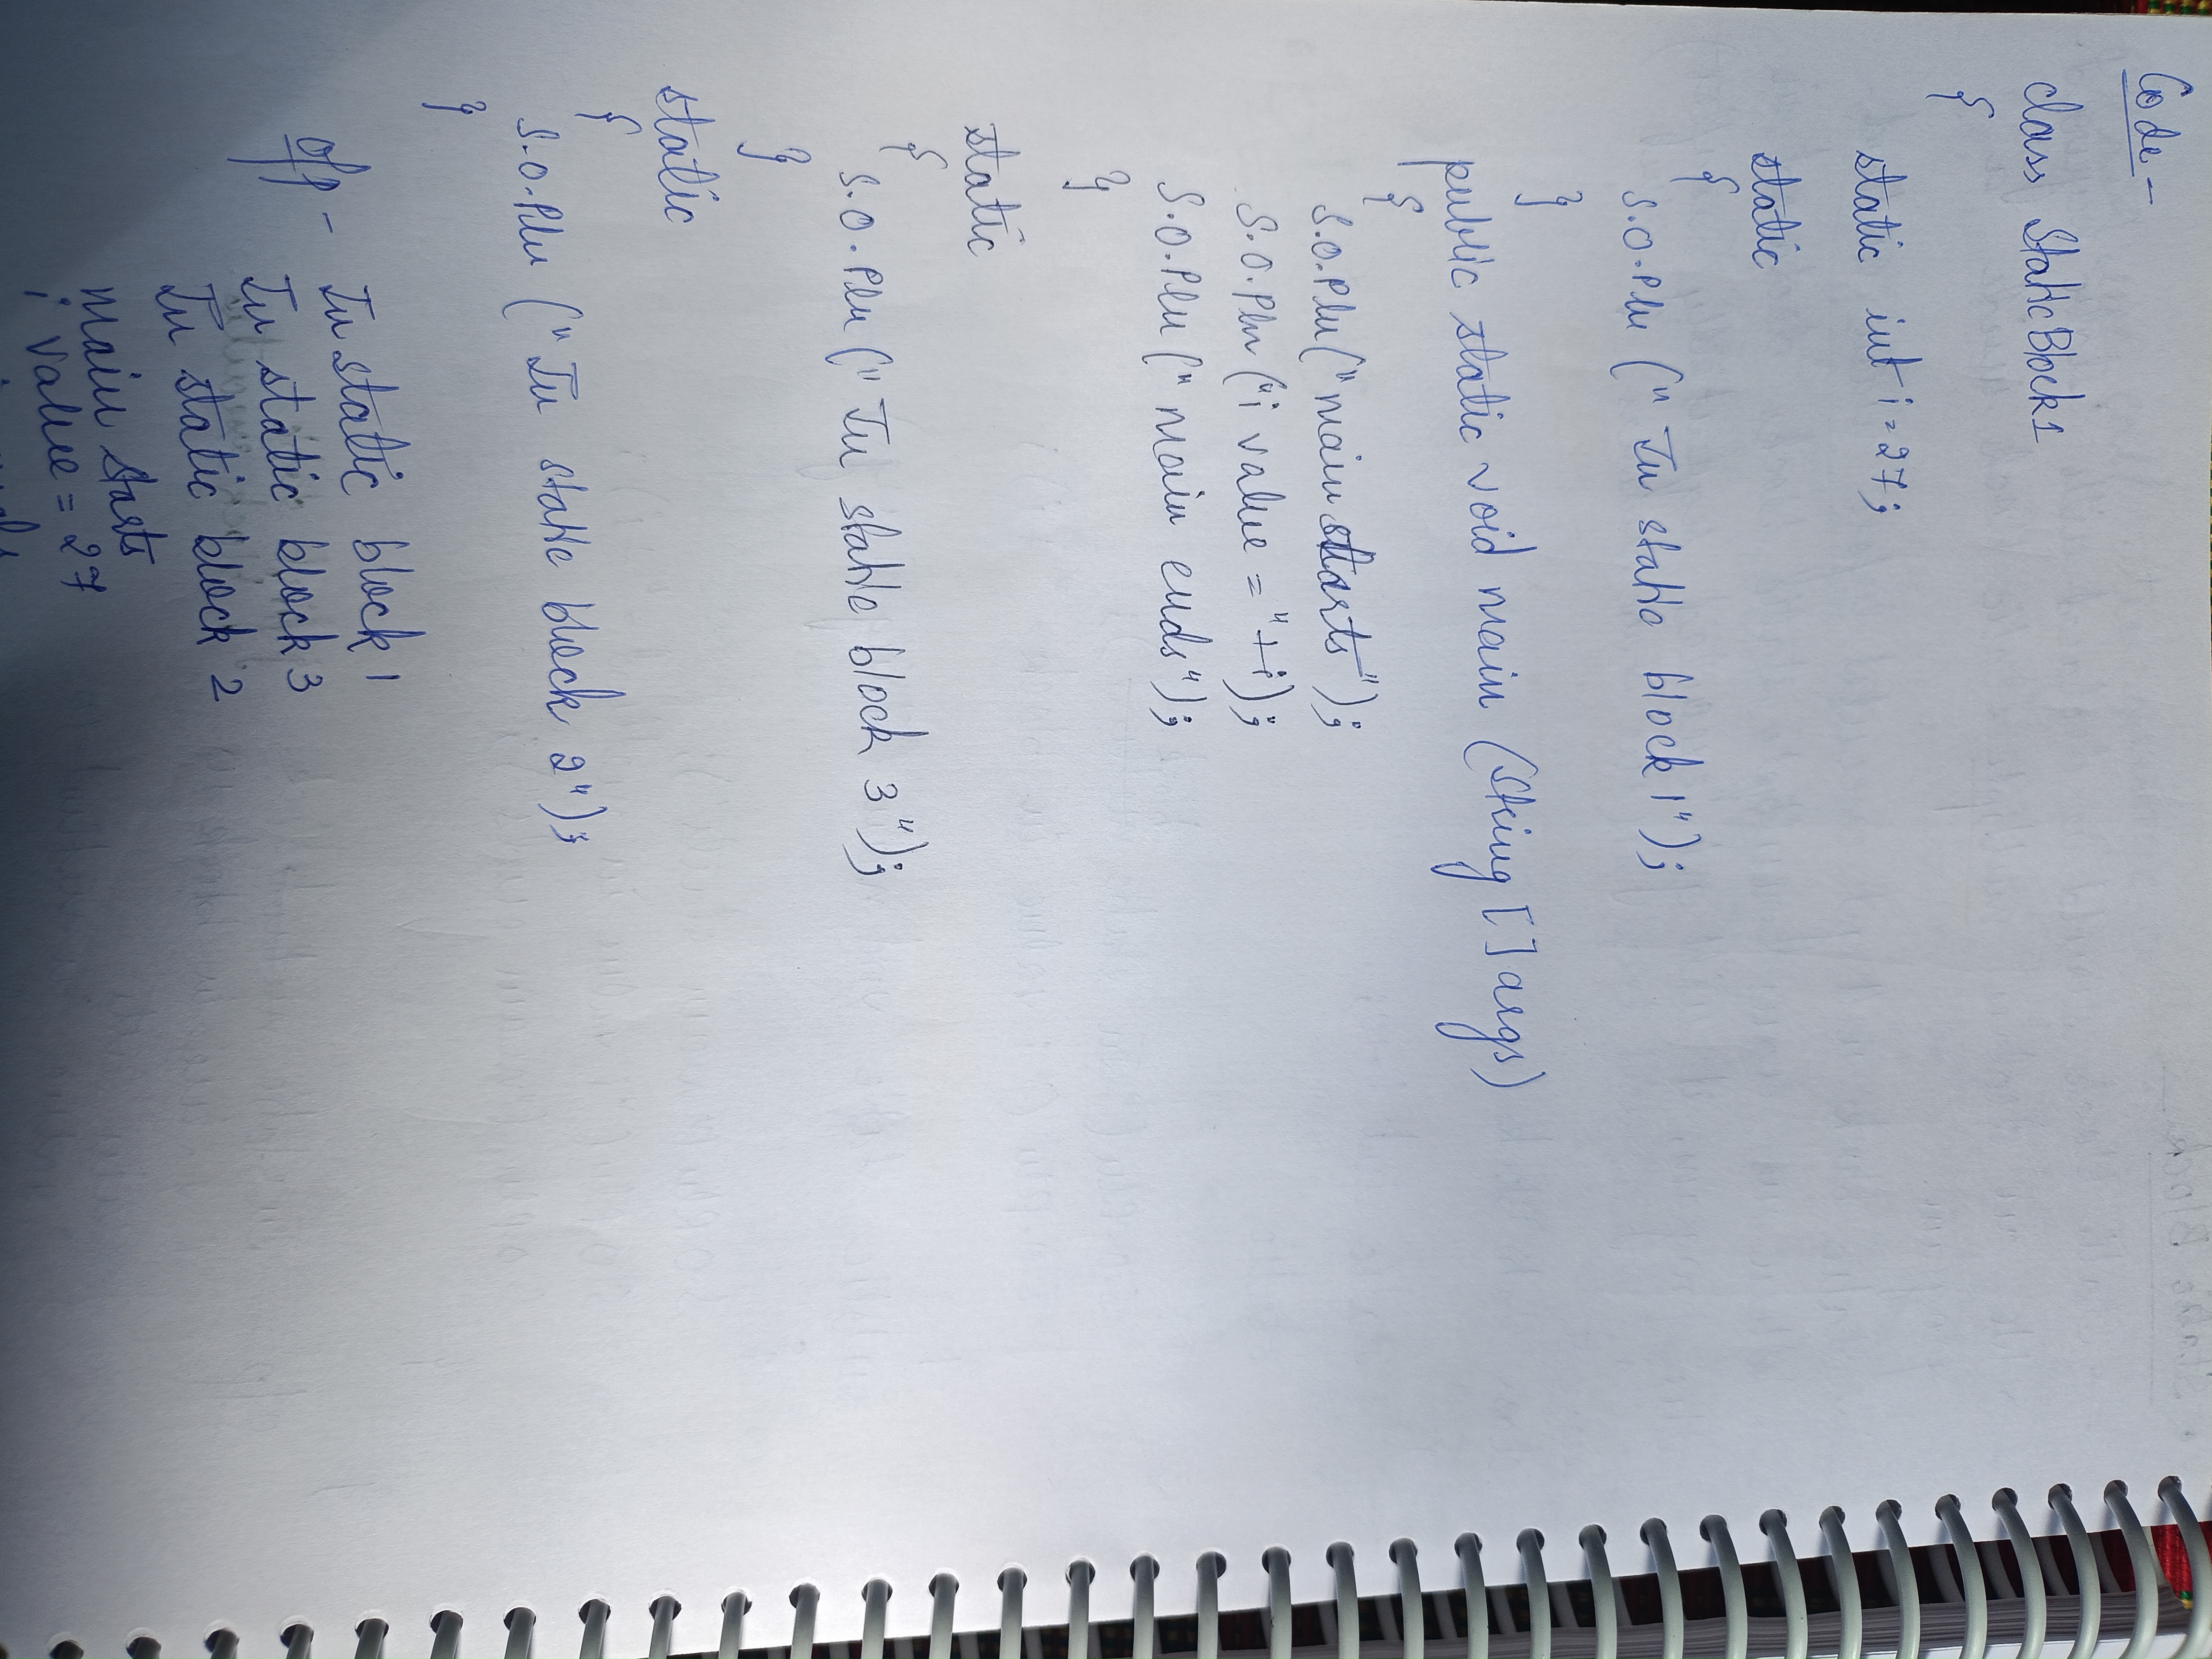 Code -
class StaticBlock1
{
static int i = 27;
static
{
S.O.Pln (" In static block 1");
}
public static void main (String [] args)
{
S.O.Pln (" main starts");
S.O.Pln ("i value = "+i);
S.O.Pln (" main ends");
}
static
{
S.O.Pln (" In static block 3");
}
static
{
S.O.Pln (" In static block 2");
}
O/P - In static block 1
In static block 3
In static block 2
main starts
i value = 27